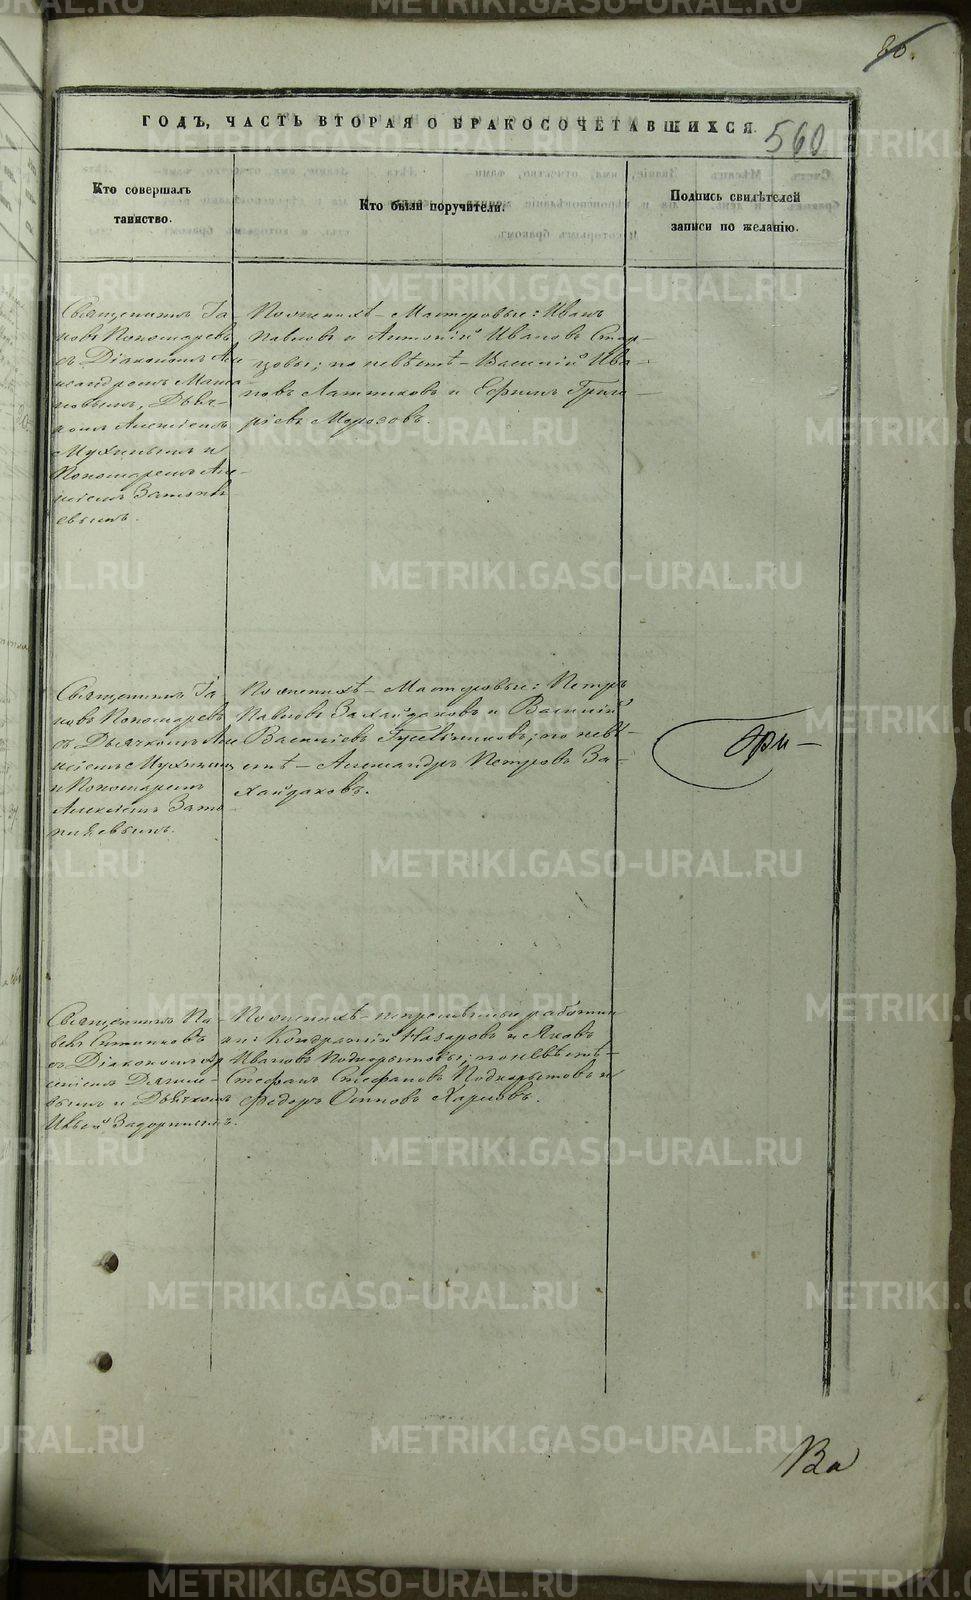 80.
ГОДЪ, ЧАСТЬ ВТОРАЯ О БРАКОСОЧЕТАВШИХСЯ.
560
Кто совершалъ
таинство.
Кто были поручители.
Подпись свидѣтелей
записи по желанію.
Священникъ Іа-
ковъ Пономаревъ
съ Діакономъ Але
ксандромъ
Дьяч-
комъ Алексіемъ
Мухинымъ и
Пономаремъ Але-
ксіемъ Затопля
евымъ.
По женихѣ – Мастеровые: Иванъ
Павловъ и Антоній Ивановъ Стар-
цовы; по невѣстѣ – Василій Ива-
новъ Латниковъ и Ефимъ Григо-
ріевъ Морозовъ.
Священникъ Іа-
ковъ Пономаревъ
съ Дьячкомъ Але
ксіемъ Мухинымъ
и Пономаремъ
Алексіемъ
По женихѣ – Мастеровые: Петръ
Павловъ Захайдаковъ и Василій
Василіевъ по невѣ-
стѣ – Александръ Петровъ За-
хайдаковъ.
Гри –
Священникъ Па-
велъ Ситниковъ
съ Діакономъ
и Дьячкомъ
По женихѣ – непремѣнные работни
ки: Кондратій Назаровъ и Яковъ
Ивановъ Подкорытовы; по невѣстѣ –
Стефанъ Стефановъ Подкорытовъ и
Федоръ Осиповъ Карповъ.
Ва
METRIKI.GASO-URAL.RU